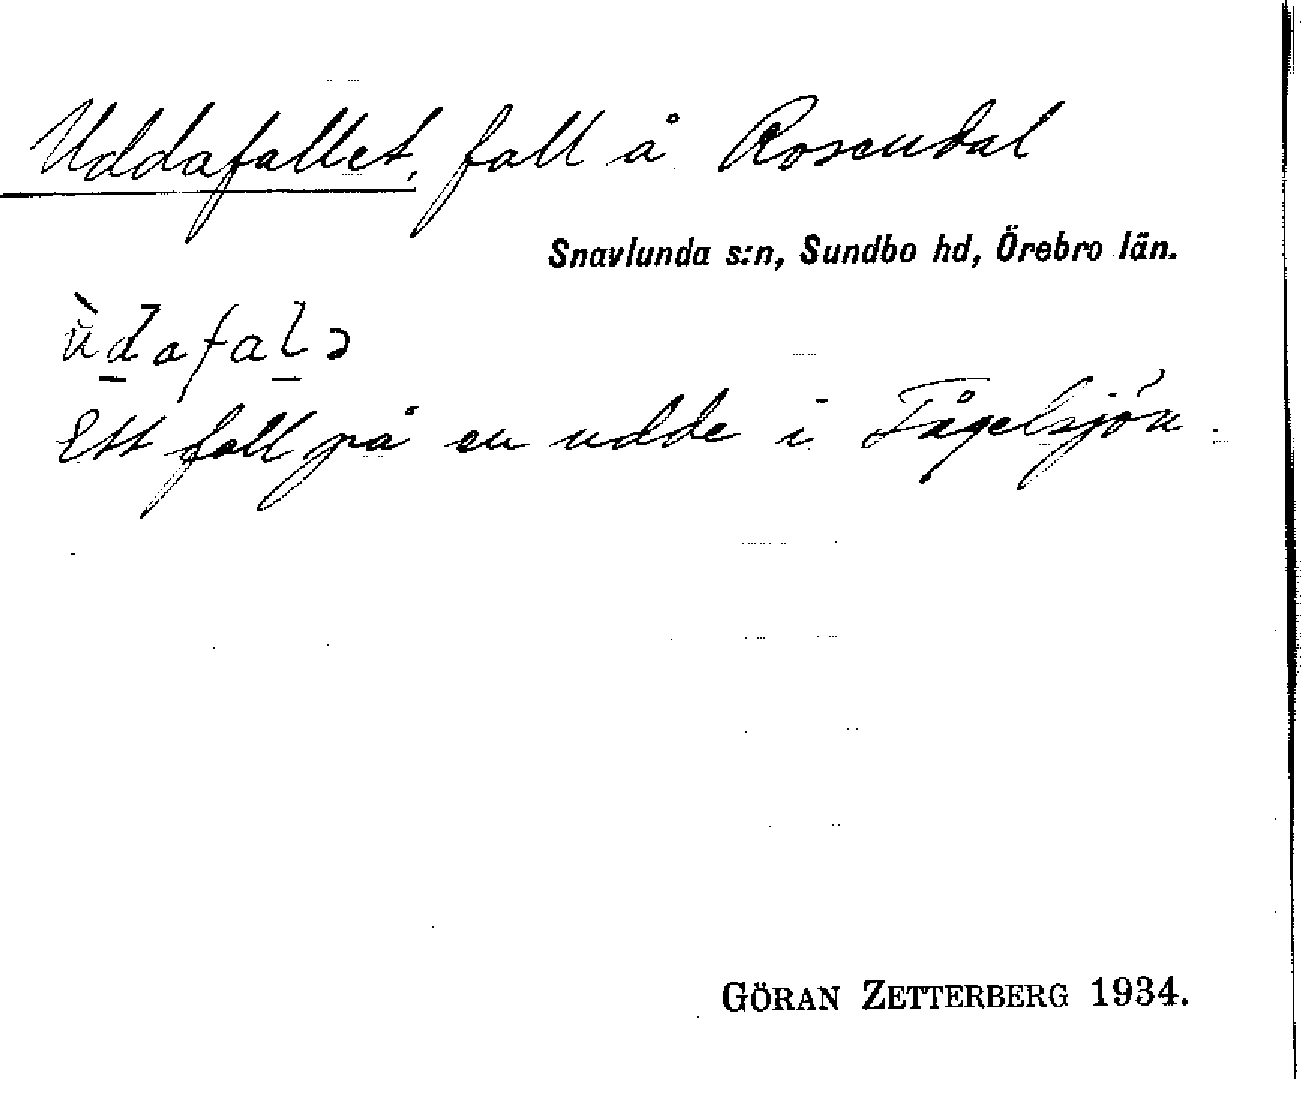 Uddafallet, fall å Rosendal
Snavlunda s:n, Sundbo hd, Örebro län.
ùdafalə
Ett fall på en udde i Fågelsjön.
GÖRAN ZETTERBERG 1934.